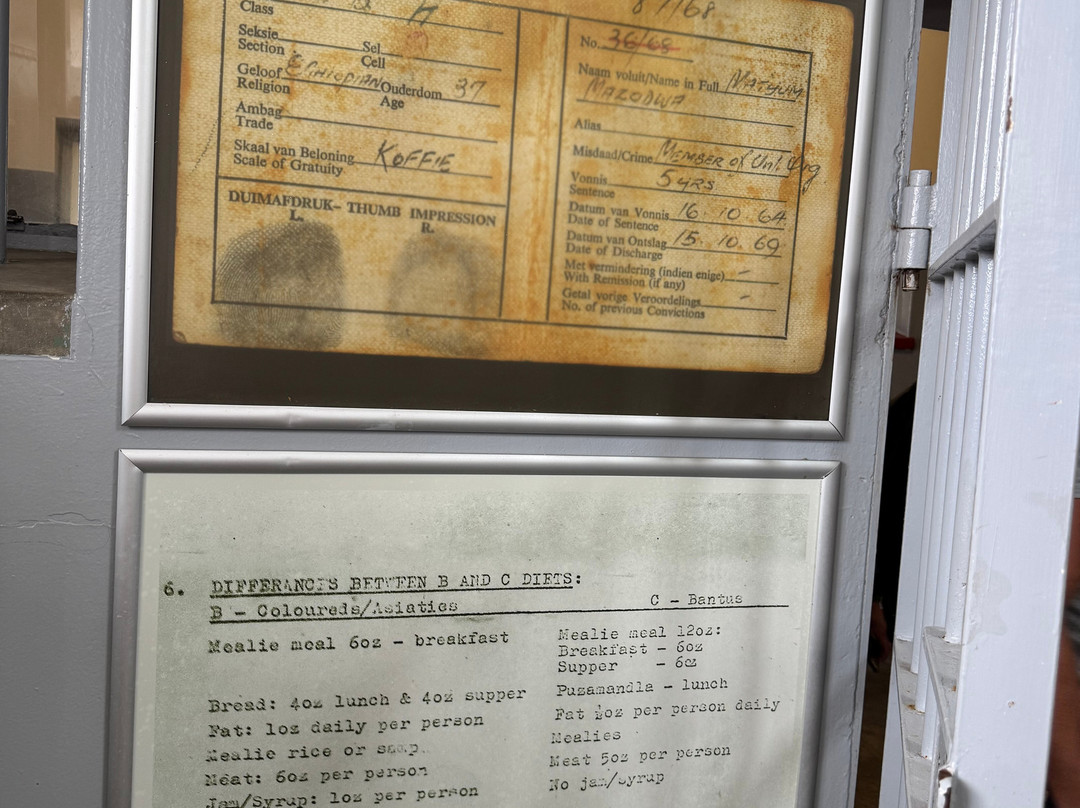 Class
Seksie
Section
Sel
Cell
Geloof
Religion
ETHIOPIAN
Ouderdom
Age
37
Ambag
Trade
Skaal van Beloning
Scale of Gratuity
KOFFIE
DUIMAFDRUK– THUMB IMPRESSION
L. R.
87/68
No. 36/68
Naam voluit/Name in Full
MAZODWA
Alias
Misdaad/Crime MEMBER of Unl. Org
Vonnis
Sentence
5 YRS
Datum van Vonnis
Date of Sentence
16. 10. 64
Datum van Ontslag
Date of Discharge
15. 10. 69
Met vermindering (indien enige) –
With Remission (if any)
Getal vorige Veroordelings –
No. of previous Convictions
6. DIFFERANCES BETWEEN B AND C DIETS:
B – Coloureds/Asiatics C – Bantus
Mealie meal 6oz – breakfast
Bread: 4oz lunch & 4oz supper
Fat: 1oz daily per person
Mealie rice or samp.
Meat: 6oz per person
Jam/Syrup: 1oz per person
Mealie meal 12oz:
Breakfast – 6oz
Supper – 6oz
Puzamandla – lunch
Fat ½oz per person daily
Mealies
Meat 5oz per person
No jam/syrup